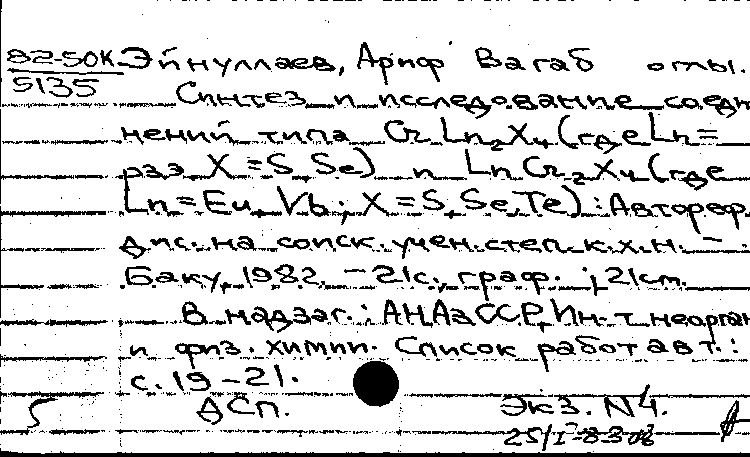 82-50К Эйнуллаев, Ариф Вагаб оглы.
5135 Синтез и исследование соеди
нений типа Cr Ln₂X₄ (где Ln =
рзэ X = S, Se) и LnCr₂X₄ (где
Ln = Eu, Yb; X = S, Se, Te) : Автореф.
дис. на соиск. учен. степ. к. х. н. –
Баку, 1982. – 21с., граф. ; 21см.
В надзаг.: АН АзССР, Ин-т неорган
и физ. химии. Список работ авт.:
с. 19-21.
5 ДСП. Экз. N4.